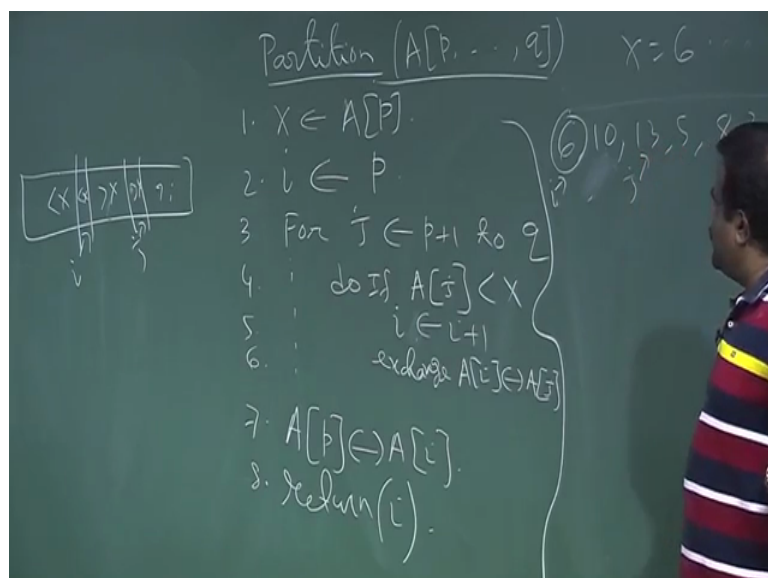 Partition (A[p, ..., q])
1. x ← A[p].
2. i ← p.
3 For j ← p+1 to q
4. do If A[j] < x
5. i ← i+1
6. exchange A[i] ↔ A[j]
7. A[p] ↔ A[i].
8. return(i).
<x >x
i j
x = 6 ...
6 10, 13, 5, 8
i j